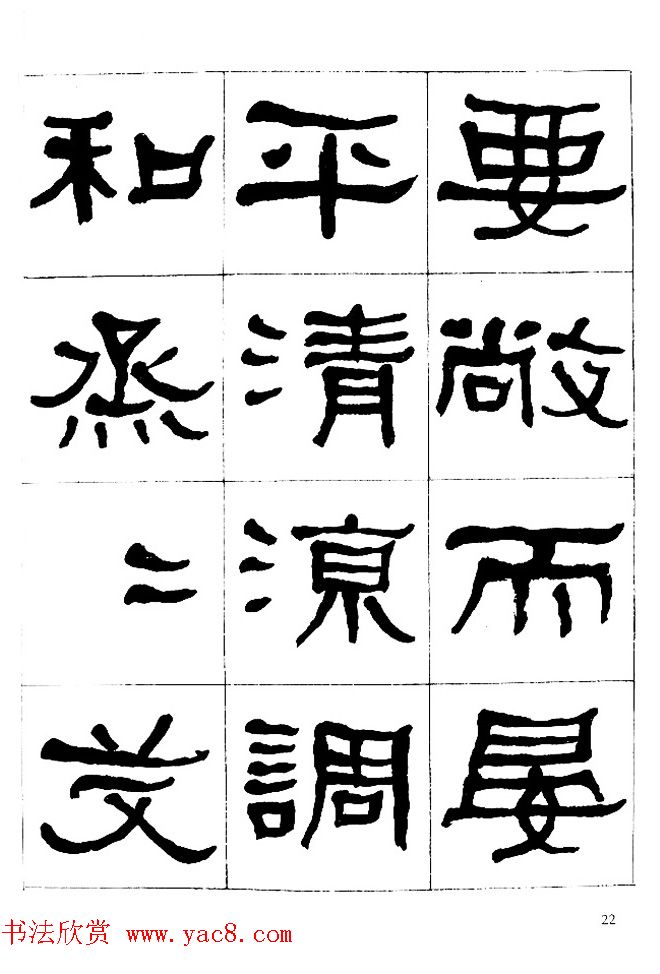 要敞而晏
平清涼調
和烝〻艾
22
书法欣赏 www.yac8.com